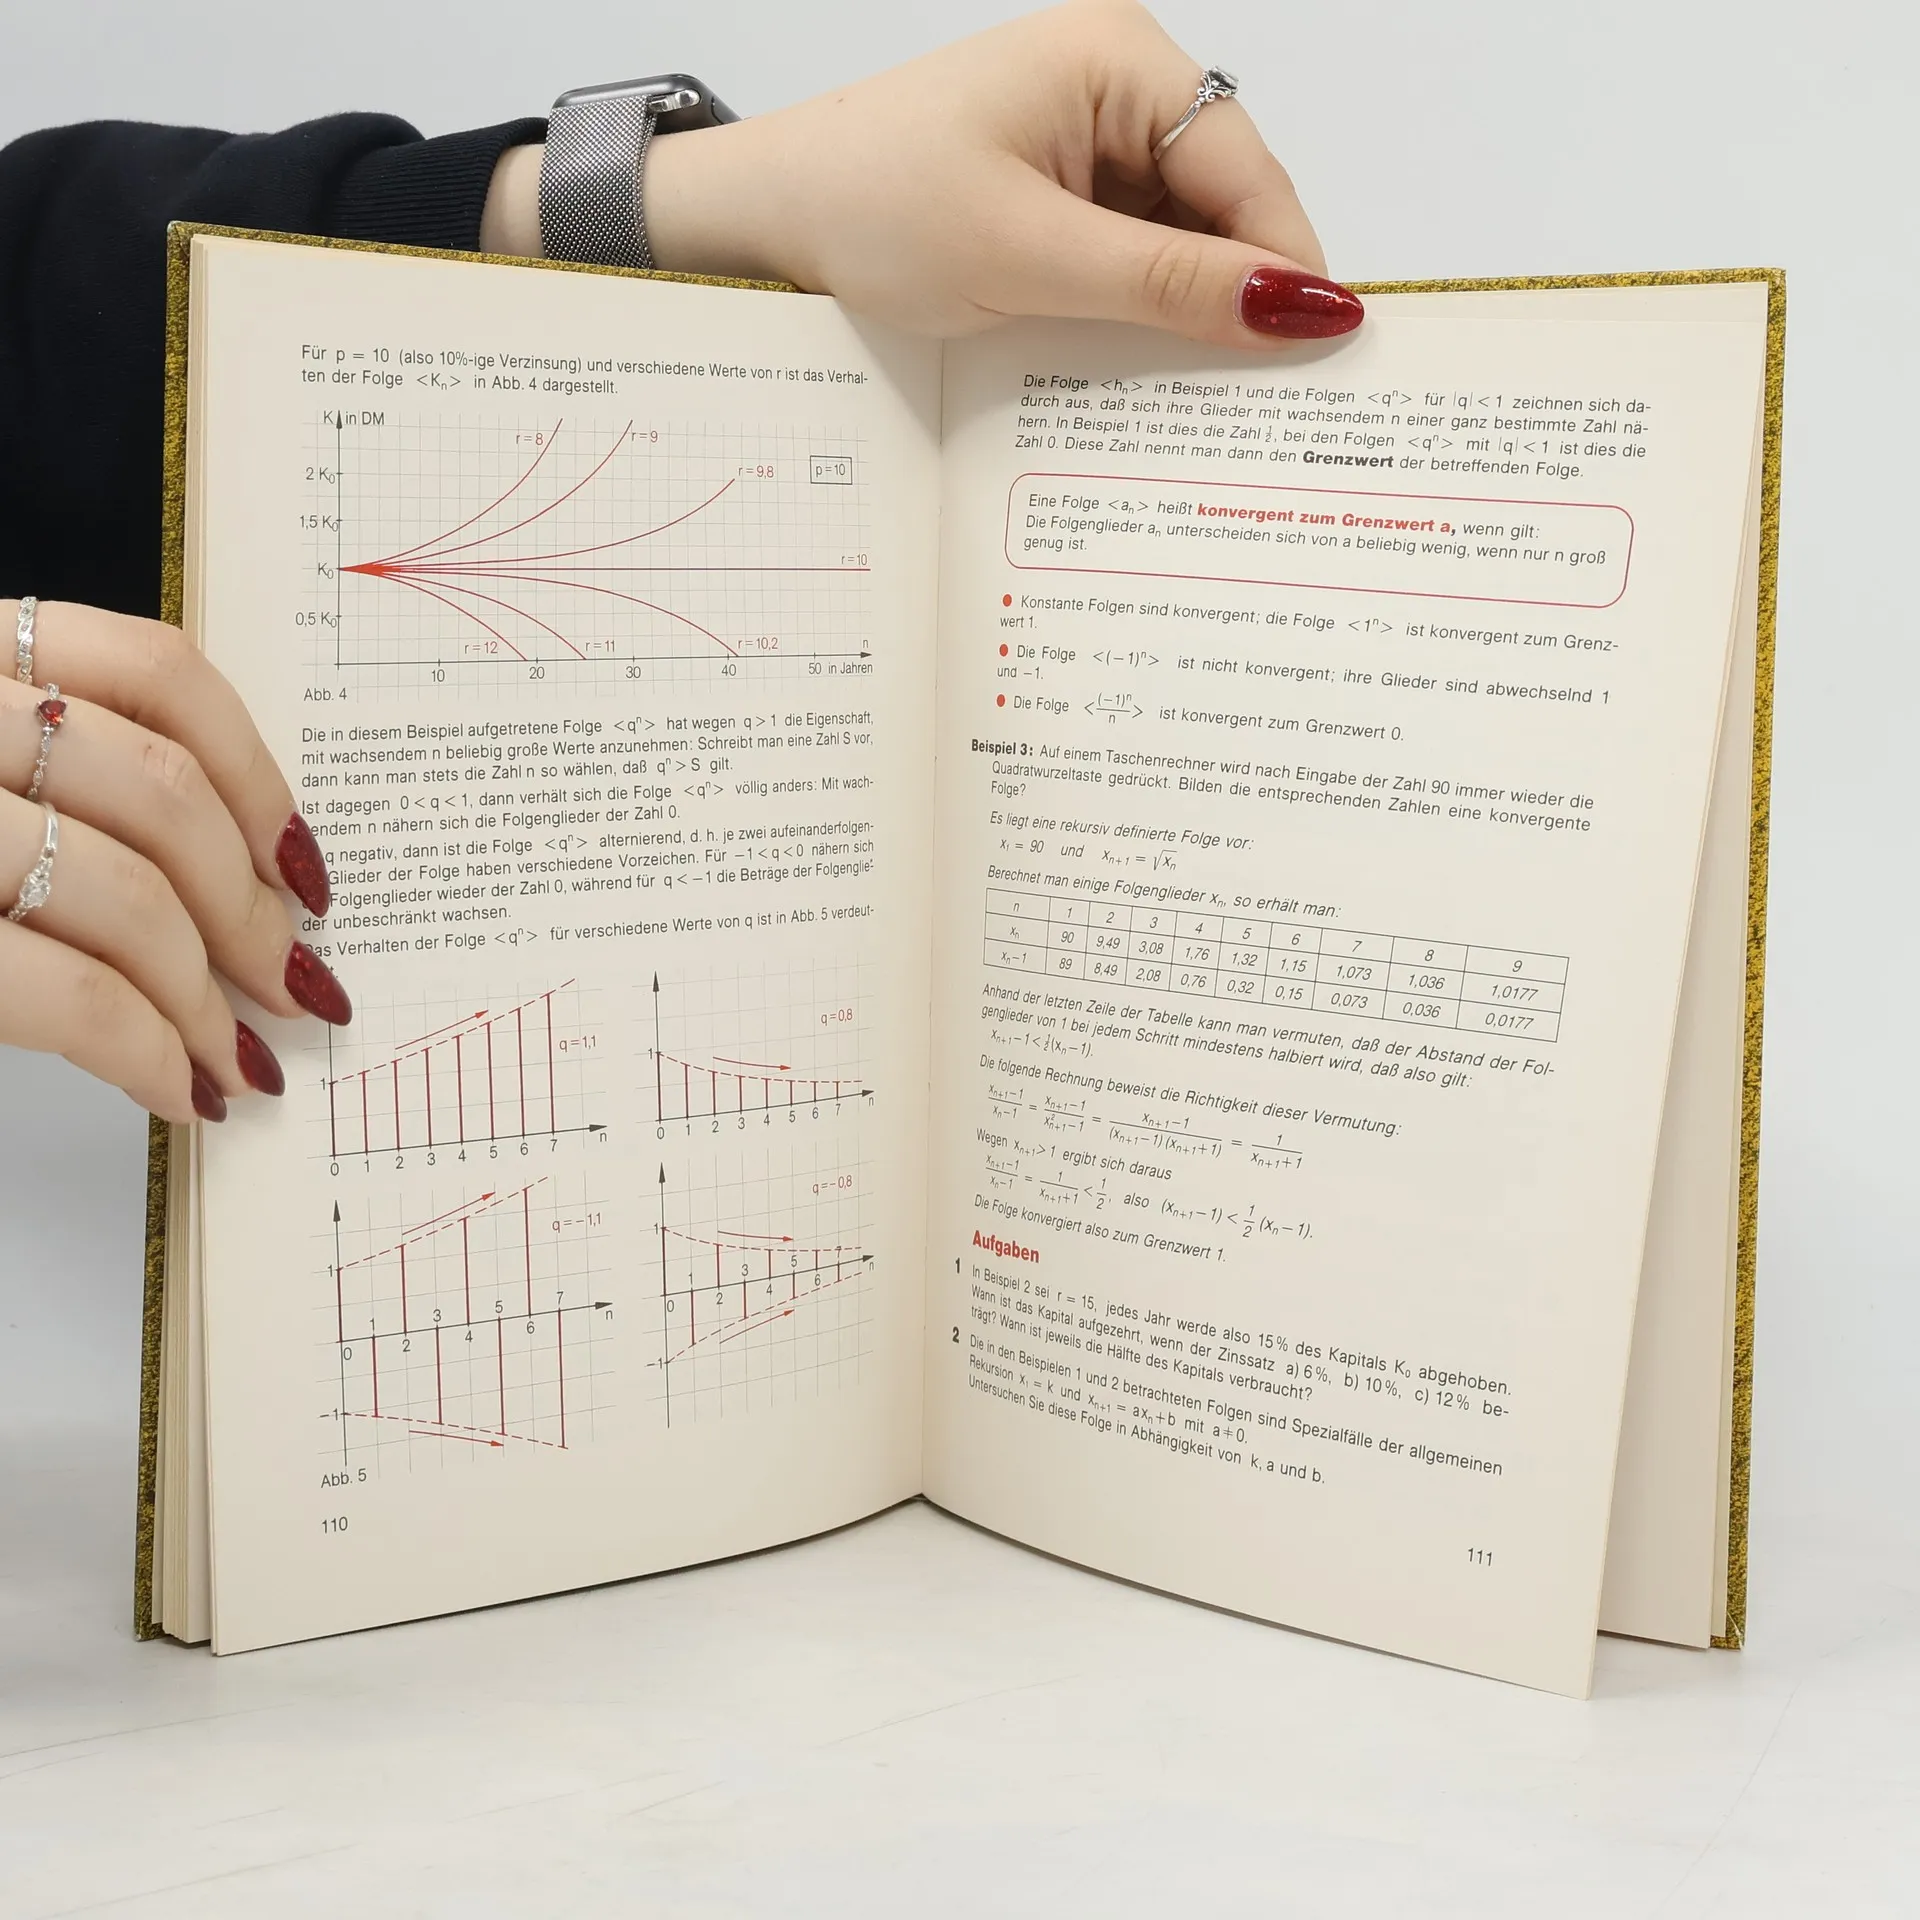 Für p = 10 (also 10%-ige Verzinsung) und verschiedene Werte von r ist das Verhal-
ten der Folge <Kₙ> in Abb. 4 dargestellt.
K in DM
r=8
r=9
r=9,8
p=10
2 K₀
1,5 K₀
K₀
r=10
0,5 K₀
r=12
r=11
r=10,2
n
10 20 30 40 50 in Jahren
Abb. 4
Die in diesem Beispiel aufgetretene Folge <qⁿ> hat wegen q>1 die Eigenschaft,
mit wachsendem n beliebig große Werte anzunehmen: Schreibt man eine Zahl S vor,
dann kann man stets die Zahl n so wählen, daß qⁿ>S gilt.
Ist dagegen 0<q<1, dann verhält sich die Folge <qⁿ> völlig anders: Mit wach-
endem n nähern sich die Folgenglieder der Zahl 0.
q negativ, dann ist die Folge <qⁿ> alternierend, d. h. je zwei aufeinanderfolgen-
Glieder der Folge haben verschiedene Vorzeichen. Für −1<q<0 nähern sich
Folgenglieder wieder der Zahl 0, während für q<−1 die Beträge der Folgenglie-
der unbeschränkt wachsen.
Das Verhalten der Folge <qⁿ> für verschiedene Werte von q ist in Abb. 5 verdeut-
q=1,1
1
n
0 1 2 3 4 5 6 7
q=0,8
1
n
0 1 2 3 4 5 6 7
q=−1,1
1
0 1 2 3 4 5 6 7 n
−1
q=−0,8
1
0 1 2 3 4 5 6 7 n
−1
Abb. 5
110
Die Folge <hₙ> in Beispiel 1 und die Folgen <qⁿ> für |q|<1 zeichnen sich da-
durch aus, daß sich ihre Glieder mit wachsendem n einer ganz bestimmte Zahl nä-
hern. In Beispiel 1 ist dies die Zahl ½, bei den Folgen <qⁿ> mit |q|<1 ist dies die
Zahl 0. Diese Zahl nennt man dann den Grenzwert der betreffenden Folge.
Eine Folge <aₙ> heißt konvergent zum Grenzwert a, wenn gilt:
Die Folgenglieder aₙ unterscheiden sich von a beliebig wenig, wenn nur n groß
genug ist.
● Konstante Folgen sind konvergent; die Folge <1ⁿ> ist konvergent zum Grenz-
wert 1.
● Die Folge <(−1)ⁿ> ist nicht konvergent; ihre Glieder sind abwechselnd 1
und −1.
● Die Folge <(−1)ⁿ/n> ist konvergent zum Grenzwert 0.
Beispiel 3: Auf einem Taschenrechner wird nach Eingabe der Zahl 90 immer wieder die
Quadratwurzeltaste gedrückt. Bilden die entsprechenden Zahlen eine konvergente
Folge?
Es liegt eine rekursiv definierte Folge vor:
x₁ = 90 und xₙ₊₁ = √xₙ
Berechnet man einige Folgenglieder xₙ, so erhält man:
n 1 2 3 4 5 6 7 8 9
xₙ 90 9,49 3,08 1,76 1,32 1,15 1,073 1,036 1,0177
xₙ−1 89 8,49 2,08 0,76 0,32 0,15 0,073 0,036 0,0177
Anhand der letzten Zeile der Tabelle kann man vermuten, daß der Abstand der Fol-
genglieder von 1 bei jedem Schritt mindestens halbiert wird, daß also gilt:
xₙ₊₁−1<½(xₙ−1).
Die folgende Rechnung beweist die Richtigkeit dieser Vermutung:
(xₙ₊₁−1)/(xₙ−1) = (xₙ₊₁−1)/(x²ₙ₊₁−1) = (xₙ₊₁−1)/((xₙ₊₁−1)(xₙ₊₁+1)) = 1/(xₙ₊₁+1)
Wegen xₙ₊₁>1 ergibt sich daraus
(xₙ₊₁−1)/(xₙ−1) = 1/(xₙ₊₁+1) < 1/2, also (xₙ₊₁−1) < 1/2 (xₙ−1).
Die Folge konvergiert also zum Grenzwert 1.
Aufgaben
1 In Beispiel 2 sei r = 15, jedes Jahr werde also 15% des Kapitals K₀ abgehoben.
Wann ist das Kapital aufgezehrt, wenn der Zinssatz a) 6%, b) 10%, c) 12% be-
trägt? Wann ist jeweils die Hälfte des Kapitals verbraucht?
2 Die in den Beispielen 1 und 2 betrachteten Folgen sind Spezialfälle der allgemeinen
Rekursion x₁ = k und xₙ₊₁ = axₙ+b mit a≠0.
Untersuchen Sie diese Folge in Abhängigkeit von k, a und b.
111